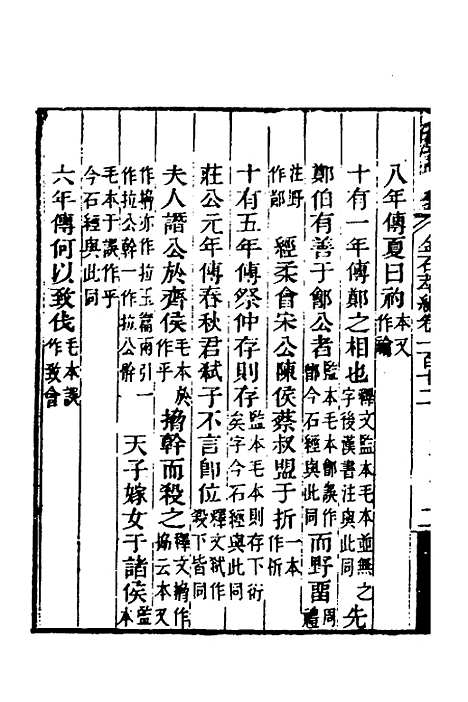 金石萃編卷一百十二　二
八年傳夏曰礿本又作禴
十有一年傳鄭之相也釋文監本毛本並無之字後漢書注與此同先
鄭伯有善于鄶公者監本毛本鄶誤作鄫今石經與此同而野畱周禮
注野作鄙　經柔會宋公陳侯蔡叔盟于折一本作析
十有五年傳祭仲存則存監本毛本則存下衍矣字今石經與此同
莊公元年傳春秋君弒子不言卽位釋文弒作殺下皆同
夫人譖公於齊侯毛本於作乎　搚幹而殺之釋文搚作拹云本又
作搚亦作拉玉篇兩引一作拉公幹一作拉公骭　天子嫁女于諸侯監本
毛本于誤作乎今石經與此同
六年傳何以致伐毛本誤作致會